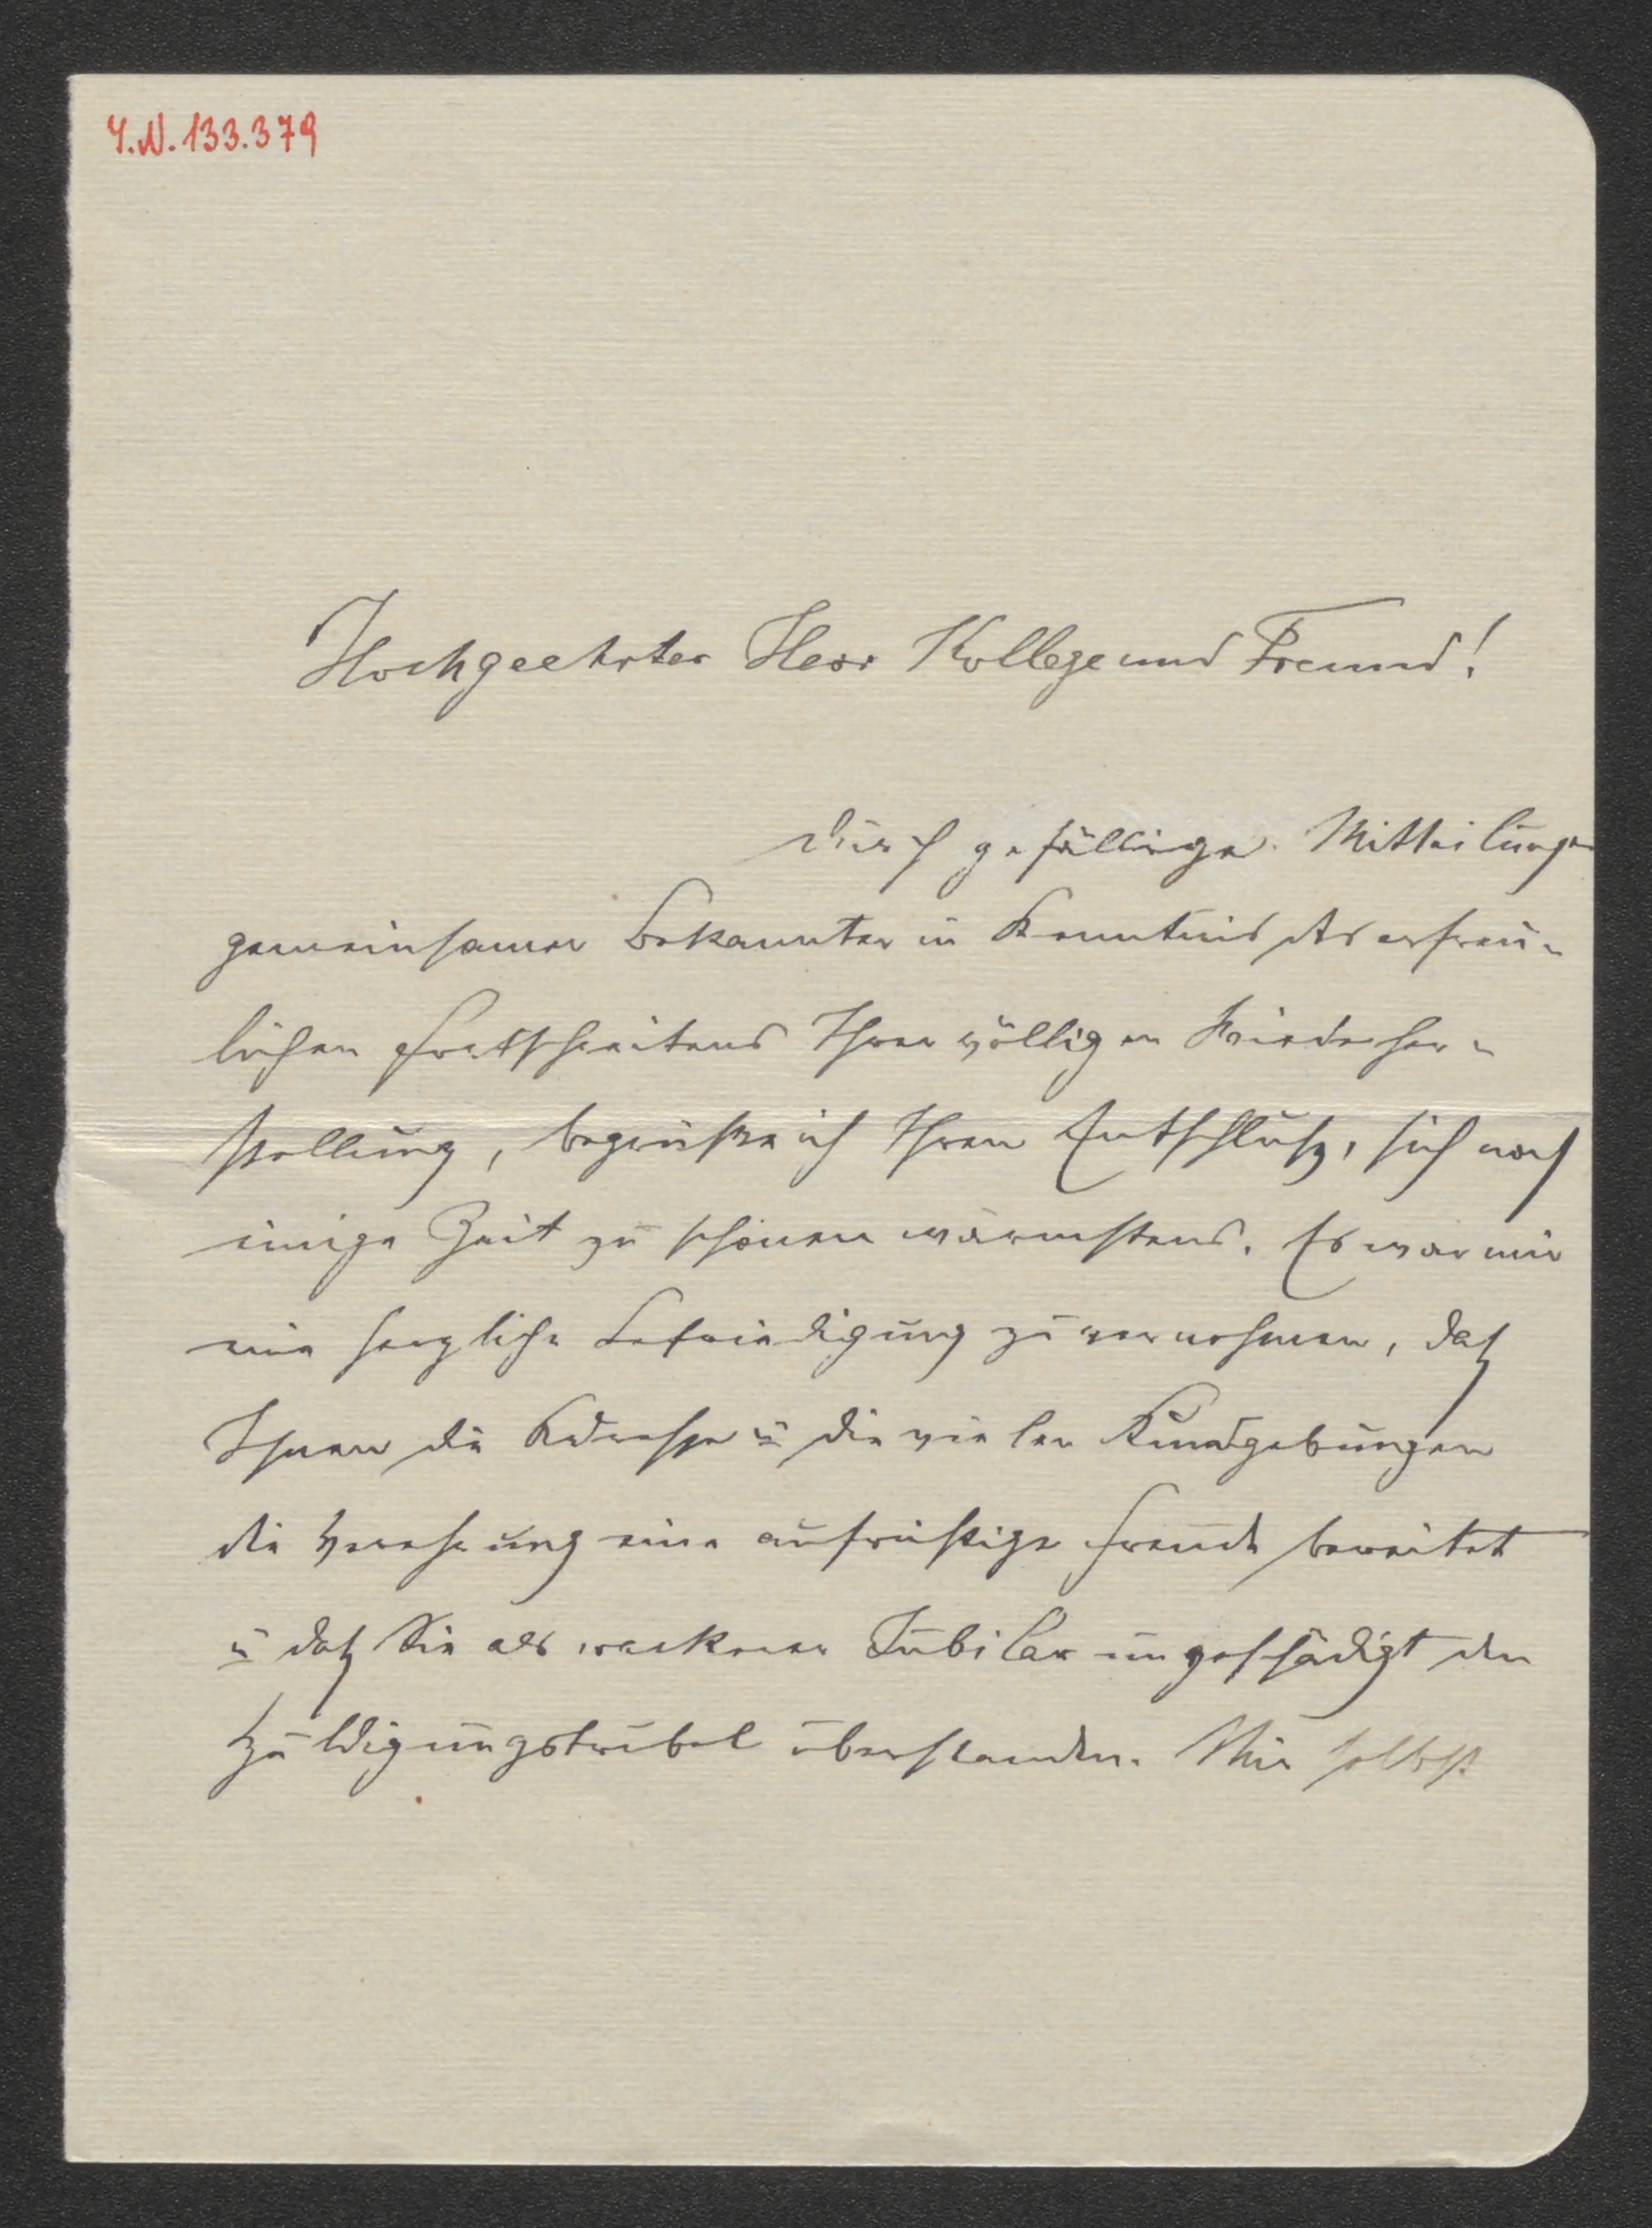 I.N. 133.379
Hochgeehrter Herr Kollege und Freund!
Durch gefällige Mitteilungen
gemeinsamer Bekannter in Kenntnis des erfreu-
lichen Fortschreitens Ihrer völligen Wiederher-
stellung, begrüße ich Ihren Entschluß, sich noch
einige Zeit zu schonen wärmstens. Es war mir
eine herzliche Befriedigung zu vernehmen, daß
Ihnen die Adresse u die vielen Kundgebungen
die Verehrung eine aufrichtige Freude bereitet
u daß Sie als wackerer Jubilar ungeschädigt den
Huldigungstrubel überstanden. Mir selbst